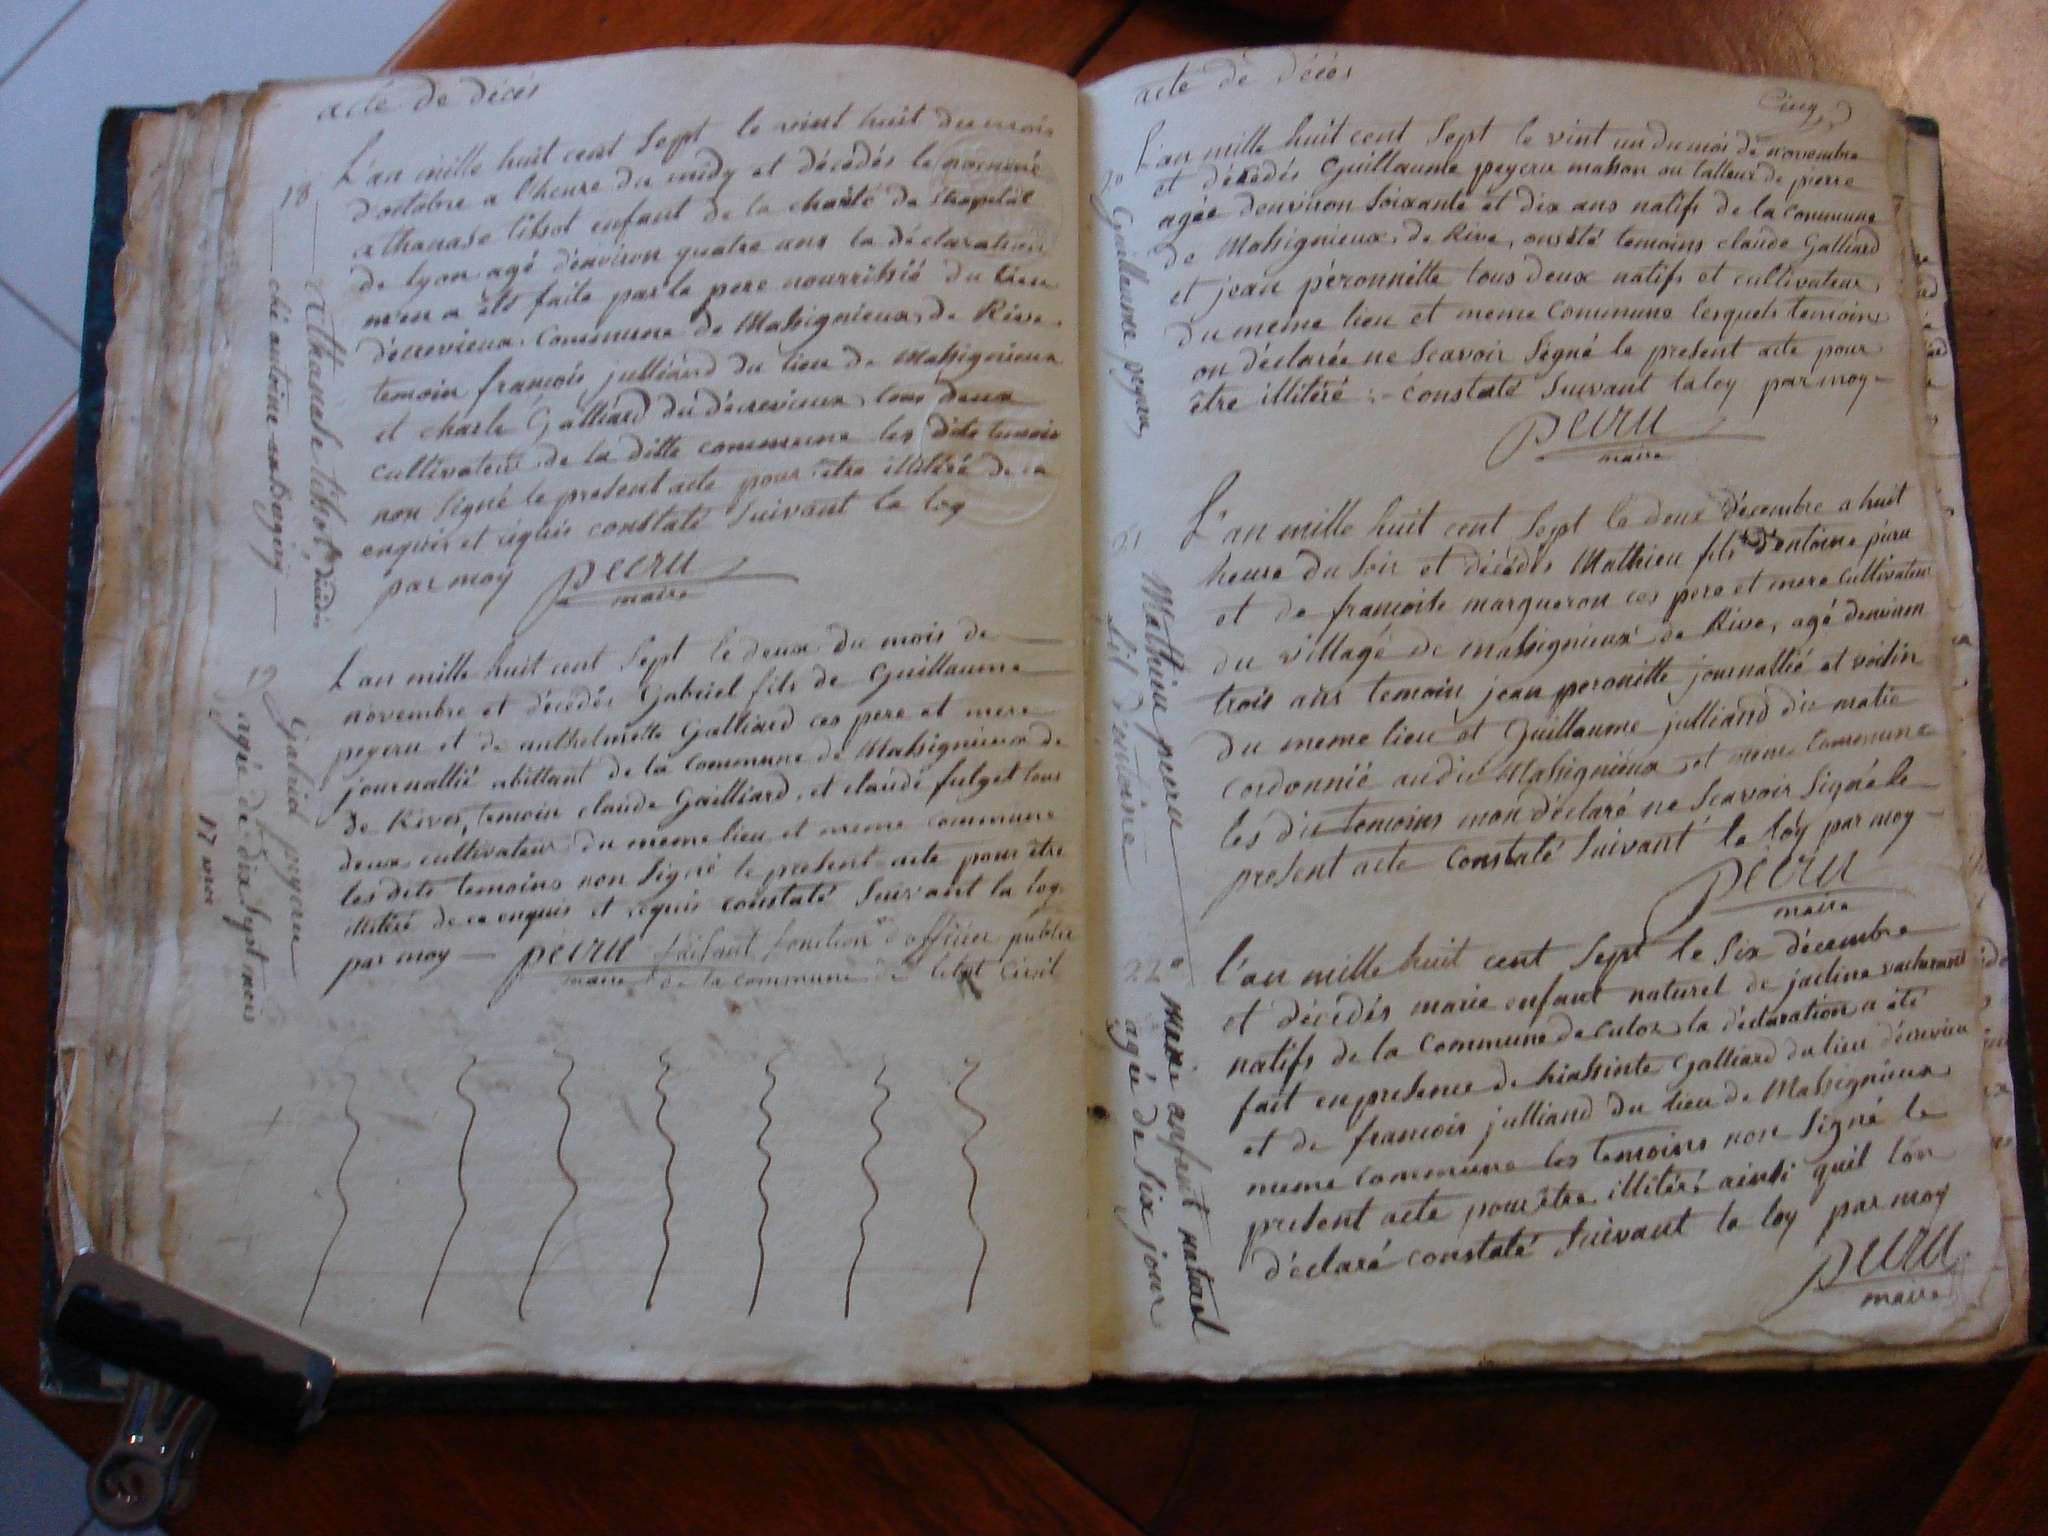 acte de décés
18
L'an mille huit cent Sept le vint huit du mois
d'octobre a l'heure du midy et décédés le nommé
athanase tibot enfant de la charité de l'hopital
de Lyon agé d'environ quatre ans la déclaration
m'en a été faite par le pere nourrissié du lieu
décrevieux Commune de Massignieux de Rive
temoin françois julliard du lieu de Massignieux
et charle Galliard du décrevieux tous deux
cultivateur de la ditte commune les dits temoin
non Signé le present acte pour être illitéré de ce
enquis et réquis constaté Suivant la loy
par moy peiru
maire
Athanase tibot décédé
ché antoine
19
L'an mille huit cent Sept le deux du mois de
novembre et décédés Gabriel fils de Guillaume
peyeru et de anthelmette Galliard ces pere et mere
journallié abittant de la Commune de Massignieux de
de Rives, temoin claude Gailliard, et claude fulget tous
deux cultivateur du meme lieu et meme commune
les dits temoins non Signé le present acte pour être
illitéré de ce enquis et réquis constaté Suivant la loy
par moy — peiru faisant fonction d'officier public
maire de la commune de l'etat Civil
Gabriel peyeru
agée de dix Sept mois
17 mois
acte de décés
Cinq
20
L'an mille huit cent Sept le vint un du mois de novembre
et décédés Guillaume peyeru masson ou talleur de pierre
agée d'environ Soixante et dix ans natifs de la commune
de Massignieux de Rive, ons été temoins claude Galliard
et jean péronnitte tous deux natifs et cultivateur
du meme lieu et meme Commune lesquels temoins
on déclarée ne Scavoir Signé le present acte pour
être illitéré :- Constaté Suivant la loy par moy -
peiru
maire
Guillaume peyeru
21
L'an mille huit cent Sept le deux décembre a huit
heure du Soir et décédés Mathieu fils d'entoine peiru
et de françoise margueron ces pere et mere cultivateur
du village de massignieux de Rive, agé denviron
trois ans temoin jean peronitte journallié et voisin
du meme lieu et Guillaume julliand du
cordonnié au du Massignieux et meme Commune
les du temoins mon déclaré ne Scavoir Signé le
present acte Constaté Suivant le loy par moy -
peiru
maire
Mathieu peiru
fil d'entoine
22
L'an mille huit cent Sept le Six décembre
et décédés marie enfant naturel de jacline
natifs de la Commune de Culoz la déclaration a été
fait en presence de hiassinte Galliard du lieu décrevieu
et de francois julliand du lieu de Massignieux
meme commune les temoins non Signé le
present acte pour être illitéré ainsi quil l'on
déclaré constaté Suivant la loy par moy
peiru
maire
Marie anfant naturel
agée de Six jour